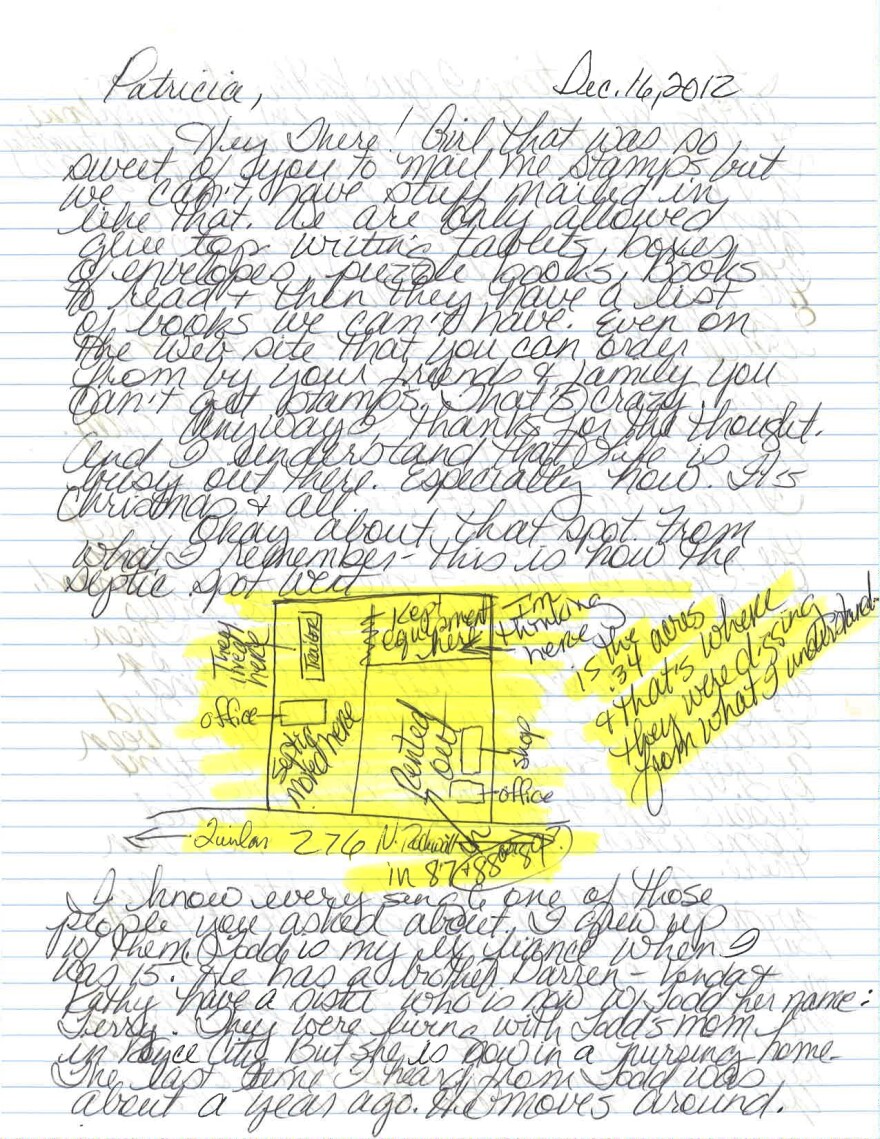 Patricia, Dec. 16, 2012
Hey There! Girl, that was so
sweet of you to mail me stamps but
we can't have stuff mailed in
like that. We are only allowed
glue top writing tablets, boxes
of envelopes, puzzle books, Books
to read & then they have a list
of books we can't have. Even on
the web site that you can order
from by your friends & family you
can't get stamps. That's crazy.
Anyways thanks for the thought.
And I understand that life is
busy out there. Especially now. It's
Christmas & all.
Okay about that spot. From
what I remember - this is how the
septic spot went
lived
here
Trailor
Kept
equipment
here
I'm
thinking
here
is the
.34 acres
& that's where
they were digging
from what I understand.
office
Septic
here
Rented
out
shop
office
Quinlan 276 N. Rockwall
in 87 88 or 89?
I know every single one of those
people you asked about. I grew up
w/ them. Todd is my ex fiance when I
was 15. He has a brother Darren - &
Kathy have a sister who is now w/ Todd her name:
Terry. They were living with Todd's mom
in Royce City But she is now in a nursing home.
The last time I heard from Todd was
about a year ago. He moves around.